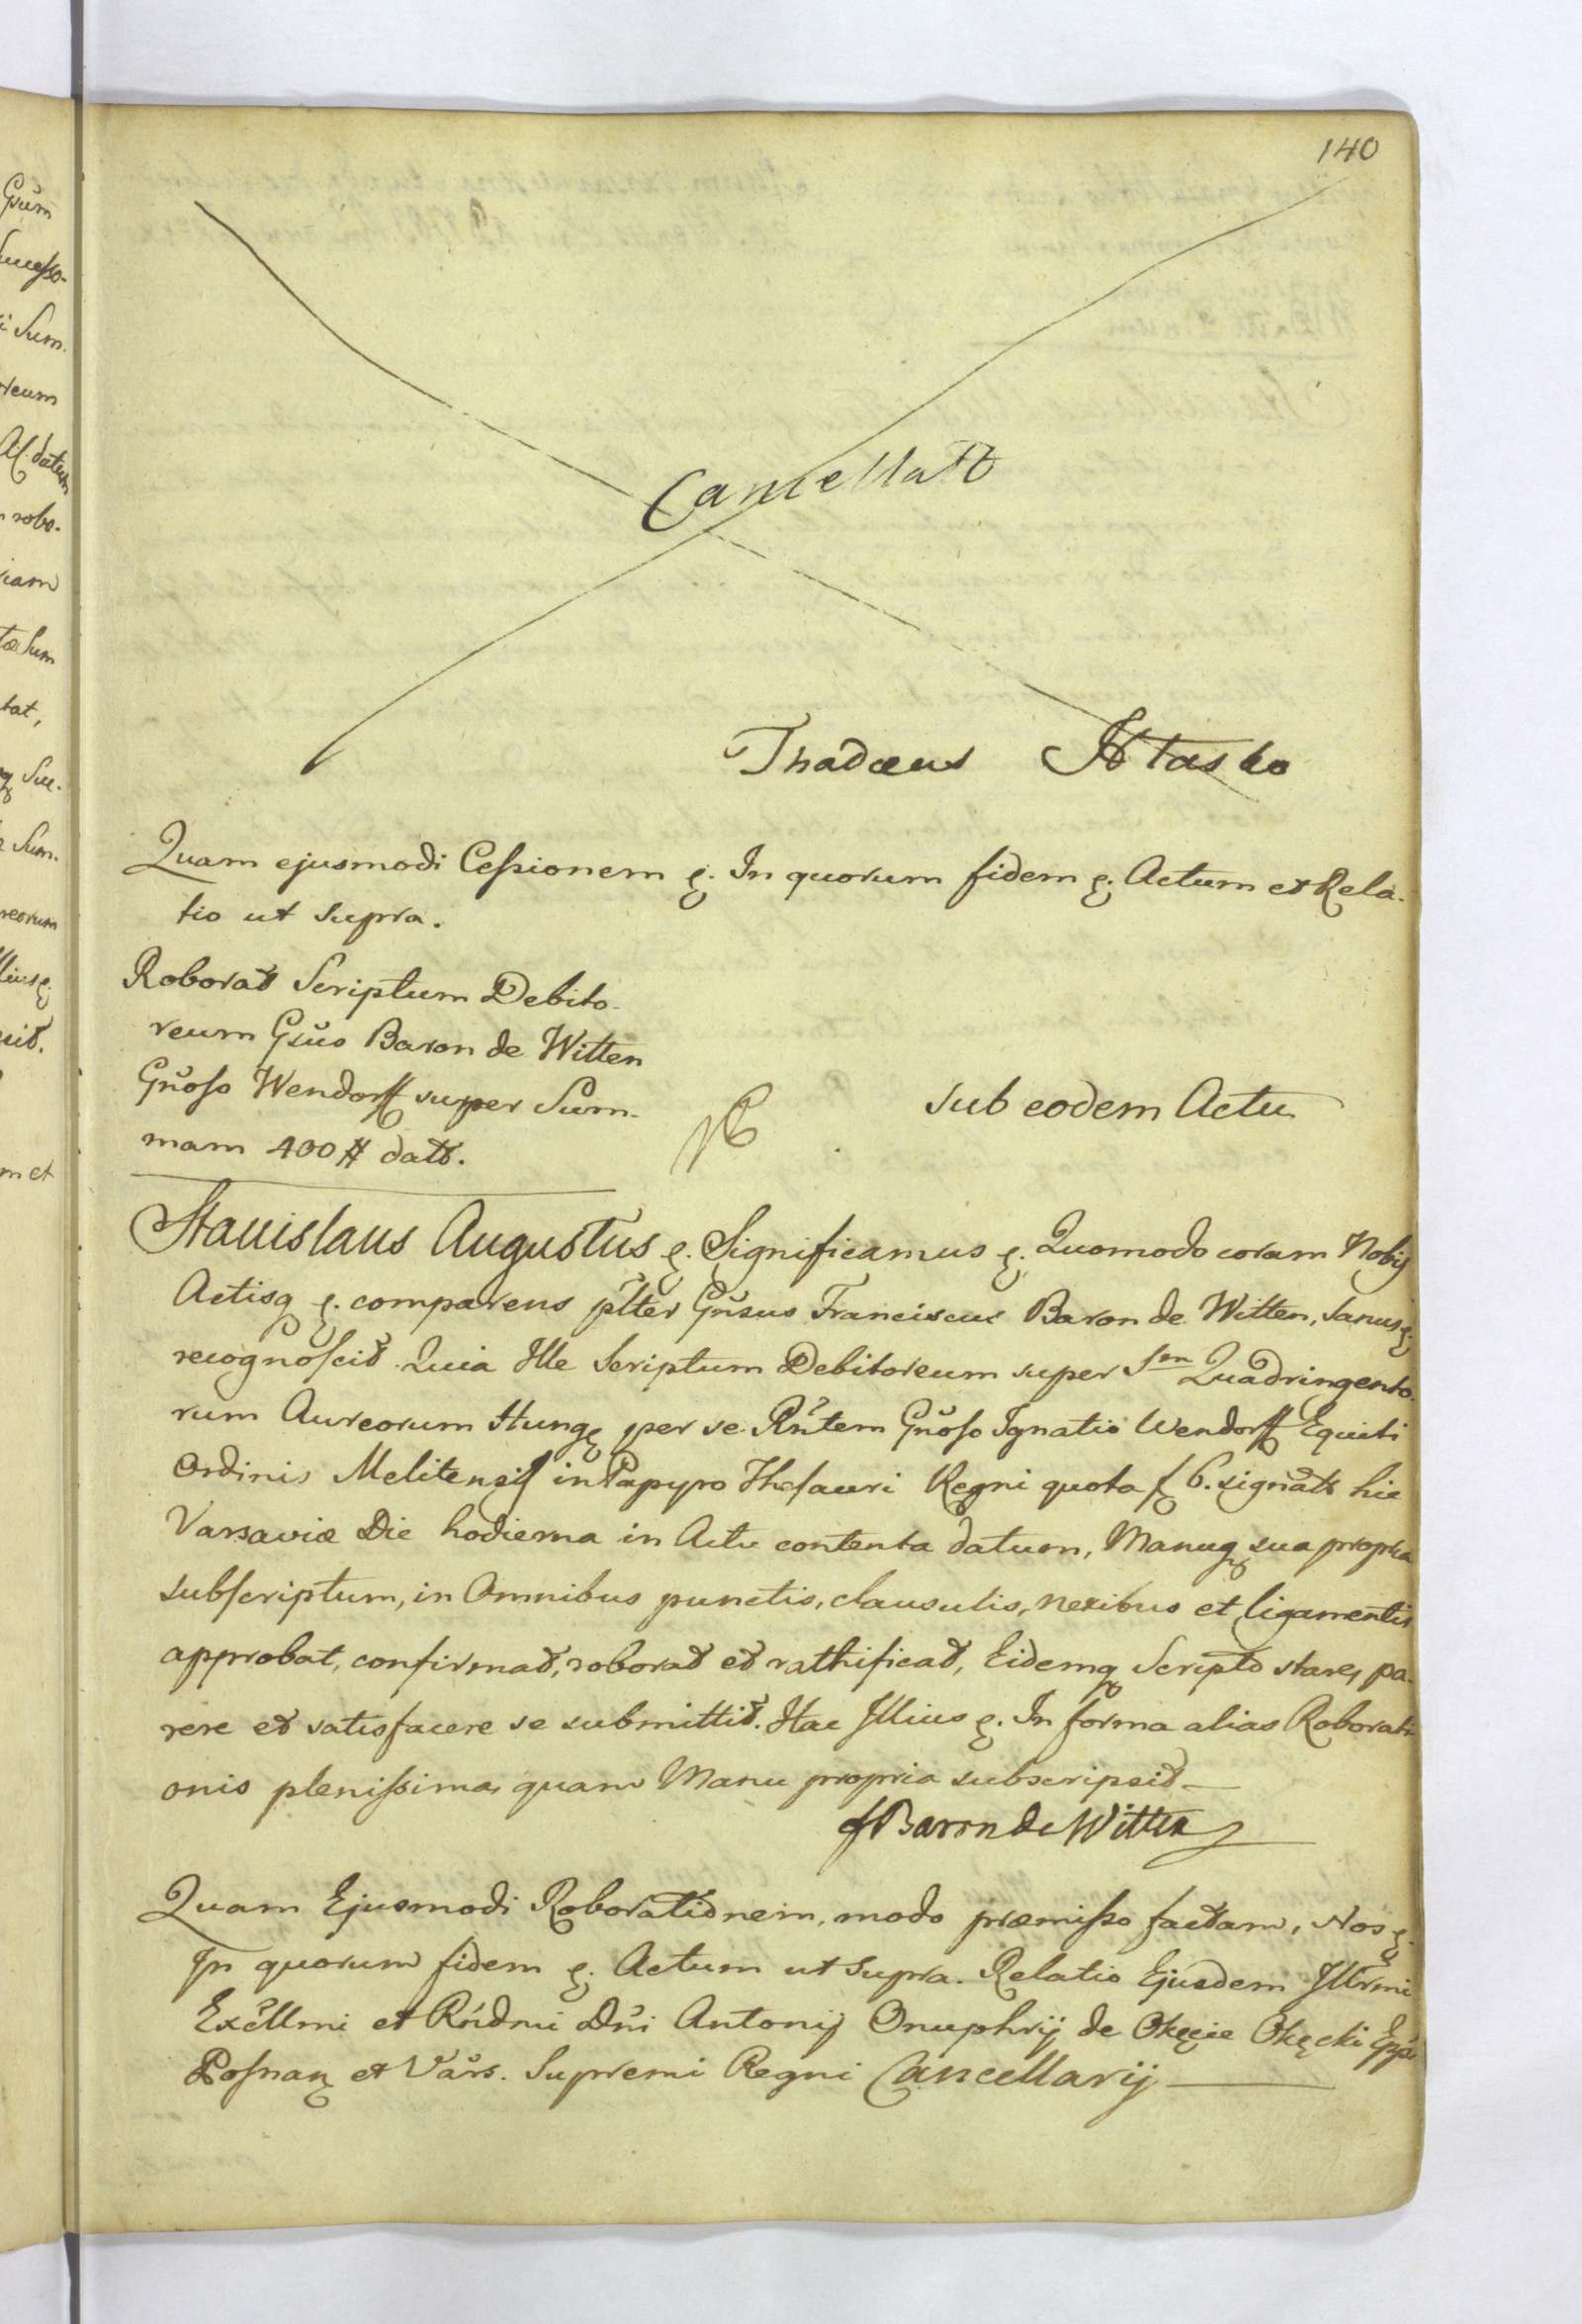 140
Cancellatt
Thadæus Htasko
Quam ejusmodi Cessionem &. In quorum fidem &. Actum et Rela-
tio ut supra.
Roborat Scriptum Debito-
reum Gñso Baron de Witten
Gñoso Wendorff super Sum-
mam 400 # datt.
sub eodem Actu
Stanislaus Augustus &. Significamus &. Quomodo coram Nobis
Actisq &. comparens plter Gñsus Franciscus Baron de Witten, sanus &.
recognoscit Quia Ille Scriptum Debitoreum super Sm Quadringento-
rum Aureorum Hung per se Rñtem Gñoso Ignatio Wendorff Equiti
Ordinis Melitensis in Papyro Thesauri Regni quota f 6. signatt hic
Varsaviæ Die hodierna in Actu contenta datum, Manuq sua propria
subscriptum, in Omnibus punctis, clausulis, nexibus et ligamentis
approbat, confirmat, roborat et rathificat, Eidemq Scripto stare, pa-
rere et satisfacere se submittit. Hac Illius &. In forma alias Roborati-
onis plenissima, quam Manu propria subscripsit
f Baron de Witten
Quam Ejusmodi Roborationem, modo præmisso factam, Nos &.
In quorum fidem &. Actum ut supra. Relatio Ejusdem Illrmi
Excllmi et Rñdmi Dñi Antonij Onuphrij de Okęcie Okęcki Eppi
Posnan et Vars. Supremi Regni Cancellarij
Gsum
Successo-
i Sum.
reum
Al. datum
robo-
riam
tæ Sum
tat,
Suc-
Sum-
reorum
llius &.
m et